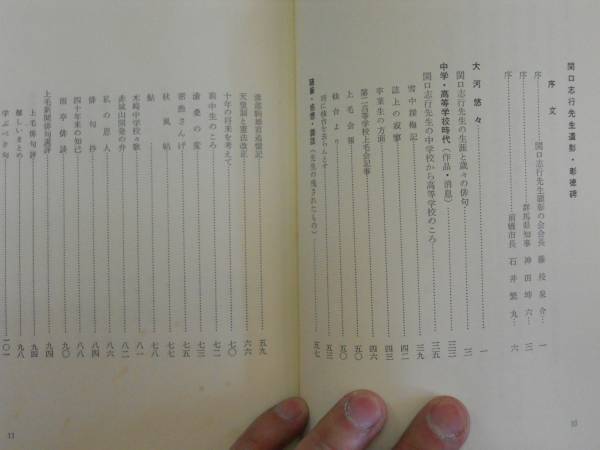 関口志行先生遺影・彰徳碑
序文
序 関口志行先生顕彰の会会長 藤枝泉介 一
序 群馬県知事 神田坤六 三
序 前橋市長 石井繁丸 六
大河悠々 一
関口志行先生の生涯と歳々の俳句 三
中学・高等学校時代（作品・消息） 三三
関口志行先生の中学校から高等学校のころ
雪中探梅記 三九
誌上の寂寥 四二
卒業生の方面 四三
第二高等学校上毛会記事 四六
上毛会報 五〇
仙台より 五〇
将に仙台を去らんとす 五四
随筆・感想・講話（先生の残されたもの） 五七
渡部駒雄君追憶記 五九
天皇制と憲法改正 六六
十年の将来を考えて 七〇
前中生のころ 七二
滄桑の変 七三
密造ざんげ 七五
秋風帖 七七
鮎 七八
木崎中学校々歌 八一
赤城山開発の弁 八二
私の恩人 八六
俳句抄 八八
四十年来の知己 九〇
雨亭俳談 九二
上毛新聞俳句選評
上毛俳句評 九四
嬉しいまとめ 九八
学ぶべき句 一〇一
10
11